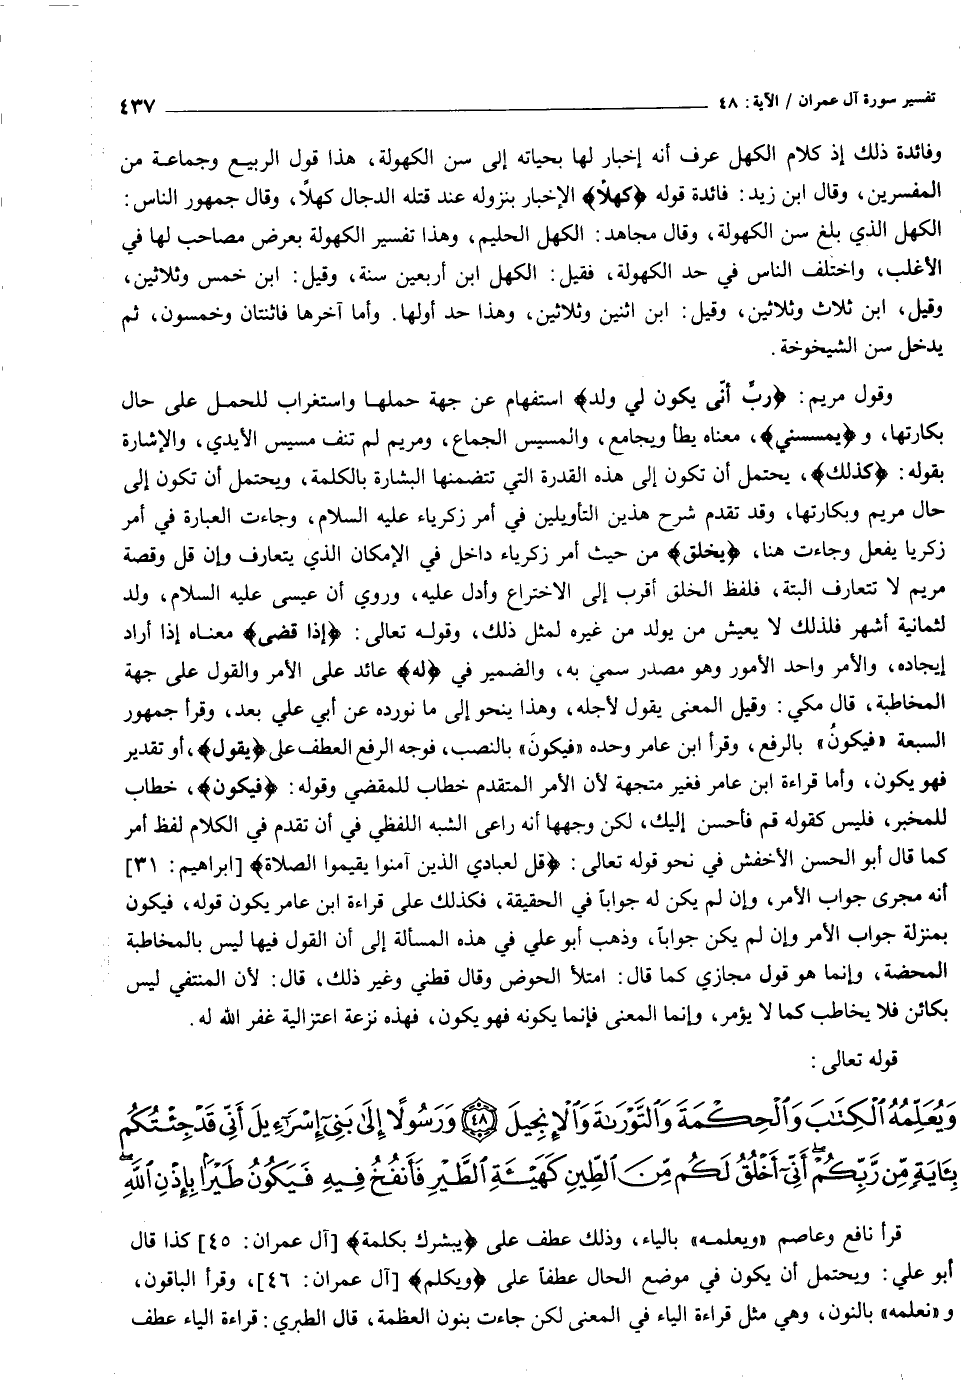 تفسير سورة آل عمران / الآية: ٤٨ ٤٣٧
وفائدة ذلك إذ كلام الكهل عرف أنه إخبار لها بحياته إلى سن الكهولة، هذا قول الربيع وجماعة من
المفسرين، وقال ابن زيد: فائدة قوله ﴿كهلاً﴾ الإخبار بنزوله عند قتله الدجال كهلاً، وقال جمهور الناس:
الكهل الذي بلغ سن الكهولة، وقال مجاهد: الكهل الحليم، وهذا تفسير الكهولة بعرض مصاحب لها في
الأغلب، واختلف الناس في حد الكهولة، فقيل: الكهل ابن أربعين سنة، وقيل: ابن خمس وثلاثين،
وقيل، ابن ثلاث وثلاثين، وقيل: ابن اثنين وثلاثين، وهذا حد أولها. وأما آخرها فاثنتان وخمسون، ثم
يدخل سن الشيخوخة.
وقول مريم: ﴿ربِّ أنّى يكون لي ولد﴾ استفهام عن جهة حملها واستغراب للحمل على حال
بكارتها، و ﴿يمسسني﴾، معناه يطأ ويجامع، والمسيس الجماع، ومريم لم تنف مسيس الأيدي، والإشارة
بقوله: ﴿كذلك﴾، يحتمل أن تكون إلى هذه القدرة التي تتضمنها البشارة بالكلمة، ويحتمل أن تكون إلى
حال مريم وبكارتها، وقد تقدم شرح هذين التأويلين في أمر زكرياء عليه السلام، وجاءت العبارة في أمر
زكريا يفعل وجاءت هنا، ﴿يخلق﴾ من حيث أمر زكرياء داخل في الإمكان الذي يتعارف وإن قل وقصة
مريم لا تتعارف البتة، فلفظ الخلق أقرب إلى الاختراع وأدل عليه، وروي أن عيسى عليه السلام، ولد
لثمانية أشهر فلذلك لا يعيش من يولد من غيره لمثل ذلك، وقوله تعالى: ﴿إذا قضى﴾ معناه إذا أراد
إيجاده، والأمر واحد الأمور وهو مصدر سمي به، والضمير في ﴿له﴾ عائد على الأمر والقول على جهة
المخاطبة، قال مكي: وقيل المعنى يقول لأجله، وهذا ينحو إلى ما نورده عن أبي علي بعد، وقرأ جمهور
السبعة «فيكونُ» بالرفع، وقرأ ابن عامر وحده «فيكونَ» بالنصب، فوجه الرفع العطف على ﴿يقول﴾، أو تقدير
فهو يكون، وأما قراءة ابن عامر فغير متجهة لأن الأمر المتقدم خطاب للمقضي وقوله: ﴿فيكون﴾، خطاب
للمخبر، فليس كقوله قم فأحسن إليك، لكن وجهها أنه راعى الشبه اللفظي في أن تقدم في الكلام لفظ أمر
كما قال أبو الحسن الأخفش في نحو قوله تعالى: ﴿قل لعبادي الذين آمنوا يقيموا الصلاة﴾ [ابراهيم: ٣١]
أنه مجرى جواب الأمر، وإن لم يكن له جواباً في الحقيقة، فكذلك على قراءة ابن عامر يكون قوله، فيكون
بمنزلة جواب الأمر وإن لم يكن جواباً، وذهب أبو علي في هذه المسألة إلى أن القول فيها ليس بالمخاطبة
المحضة، وإنما هو قول مجازي كما قال: امتلأ الحوض وقال قطني وغير ذلك، قال: لأن المنتفي ليس
بكائن فلا يخاطب كما لا يؤمر، وإنما المعنى فإنما يكونه فهو يكون، فهذه نزعة اعتزالية غفر الله له.
قوله تعالى:
وَيُعَلِّمُهُ ٱلْكِتَٰبَ وَٱلْحِكْمَةَ وَٱلتَّوْرَىٰةَ وَٱلْإِنجِيلَ ٤٨ وَرَسُولًا إِلَىٰ بَنِىٓ إِسْرَٰٓءِيلَ أَنِّى قَدْ جِئْتُكُم
بِـَٔايَةٍ مِّن رَّبِّكُمْ ۖ أَنِّىٓ أَخْلُقُ لَكُم مِّنَ ٱلطِّينِ كَهَيْـَٔةِ ٱلطَّيْرِ فَأَنفُخُ فِيهِ فَيَكُونُ طَيْرًۢا بِإِذْنِ ٱللَّهِ ۖ
قرأ نافع وعاصم «ويعلمه» بالياء، وذلك عطف على ﴿يبشرك بكلمة﴾ [آل عمران: ٤٥] كذا قال
أبو علي: ويحتمل أن يكون في موضع الحال عطفاً على ﴿ويكلم﴾ [آل عمران: ٤٦]، وقرأ الباقون،
و «نعلمه» بالنون، وهي مثل قراءة الياء في المعنى لكن جاءت بنون العظمة، قال الطبري: قراءة الياء عطف